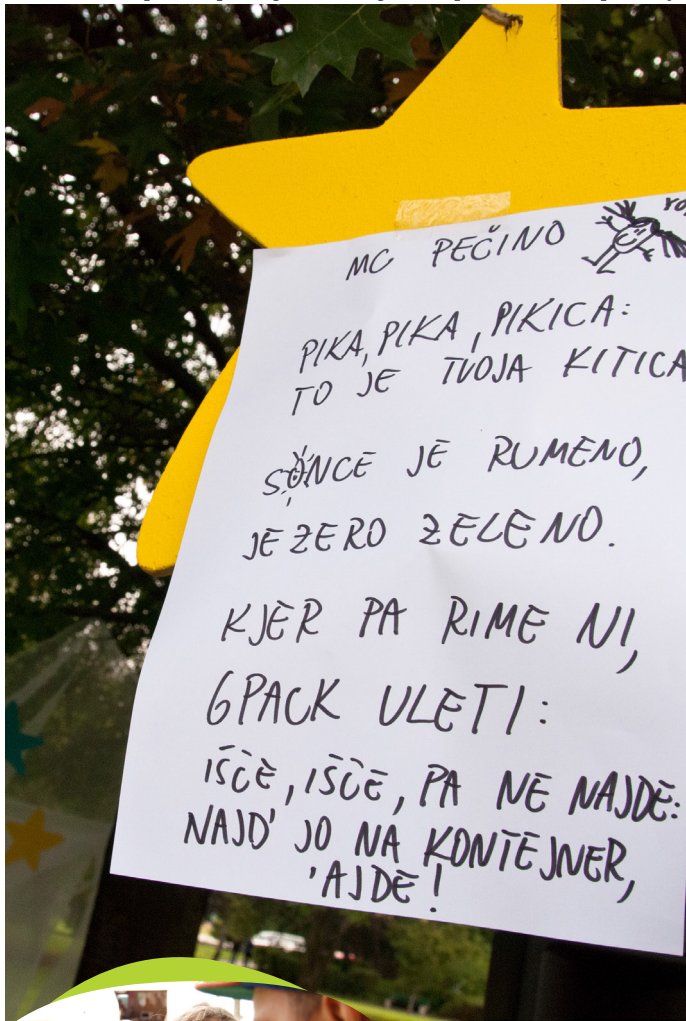 MC PEČINO
PIKA, PIKA, PIKICA:
TO JE TVOJA KITICA
SONCE JE RUMENO,
JEZERO ZELENO.
KJER PA RIME NI,
6PACK ULETI:
IŠČE, IŠČE, PA NE NAJDE:
NAJD' JO NA KONTEJNER,
'AJDE!